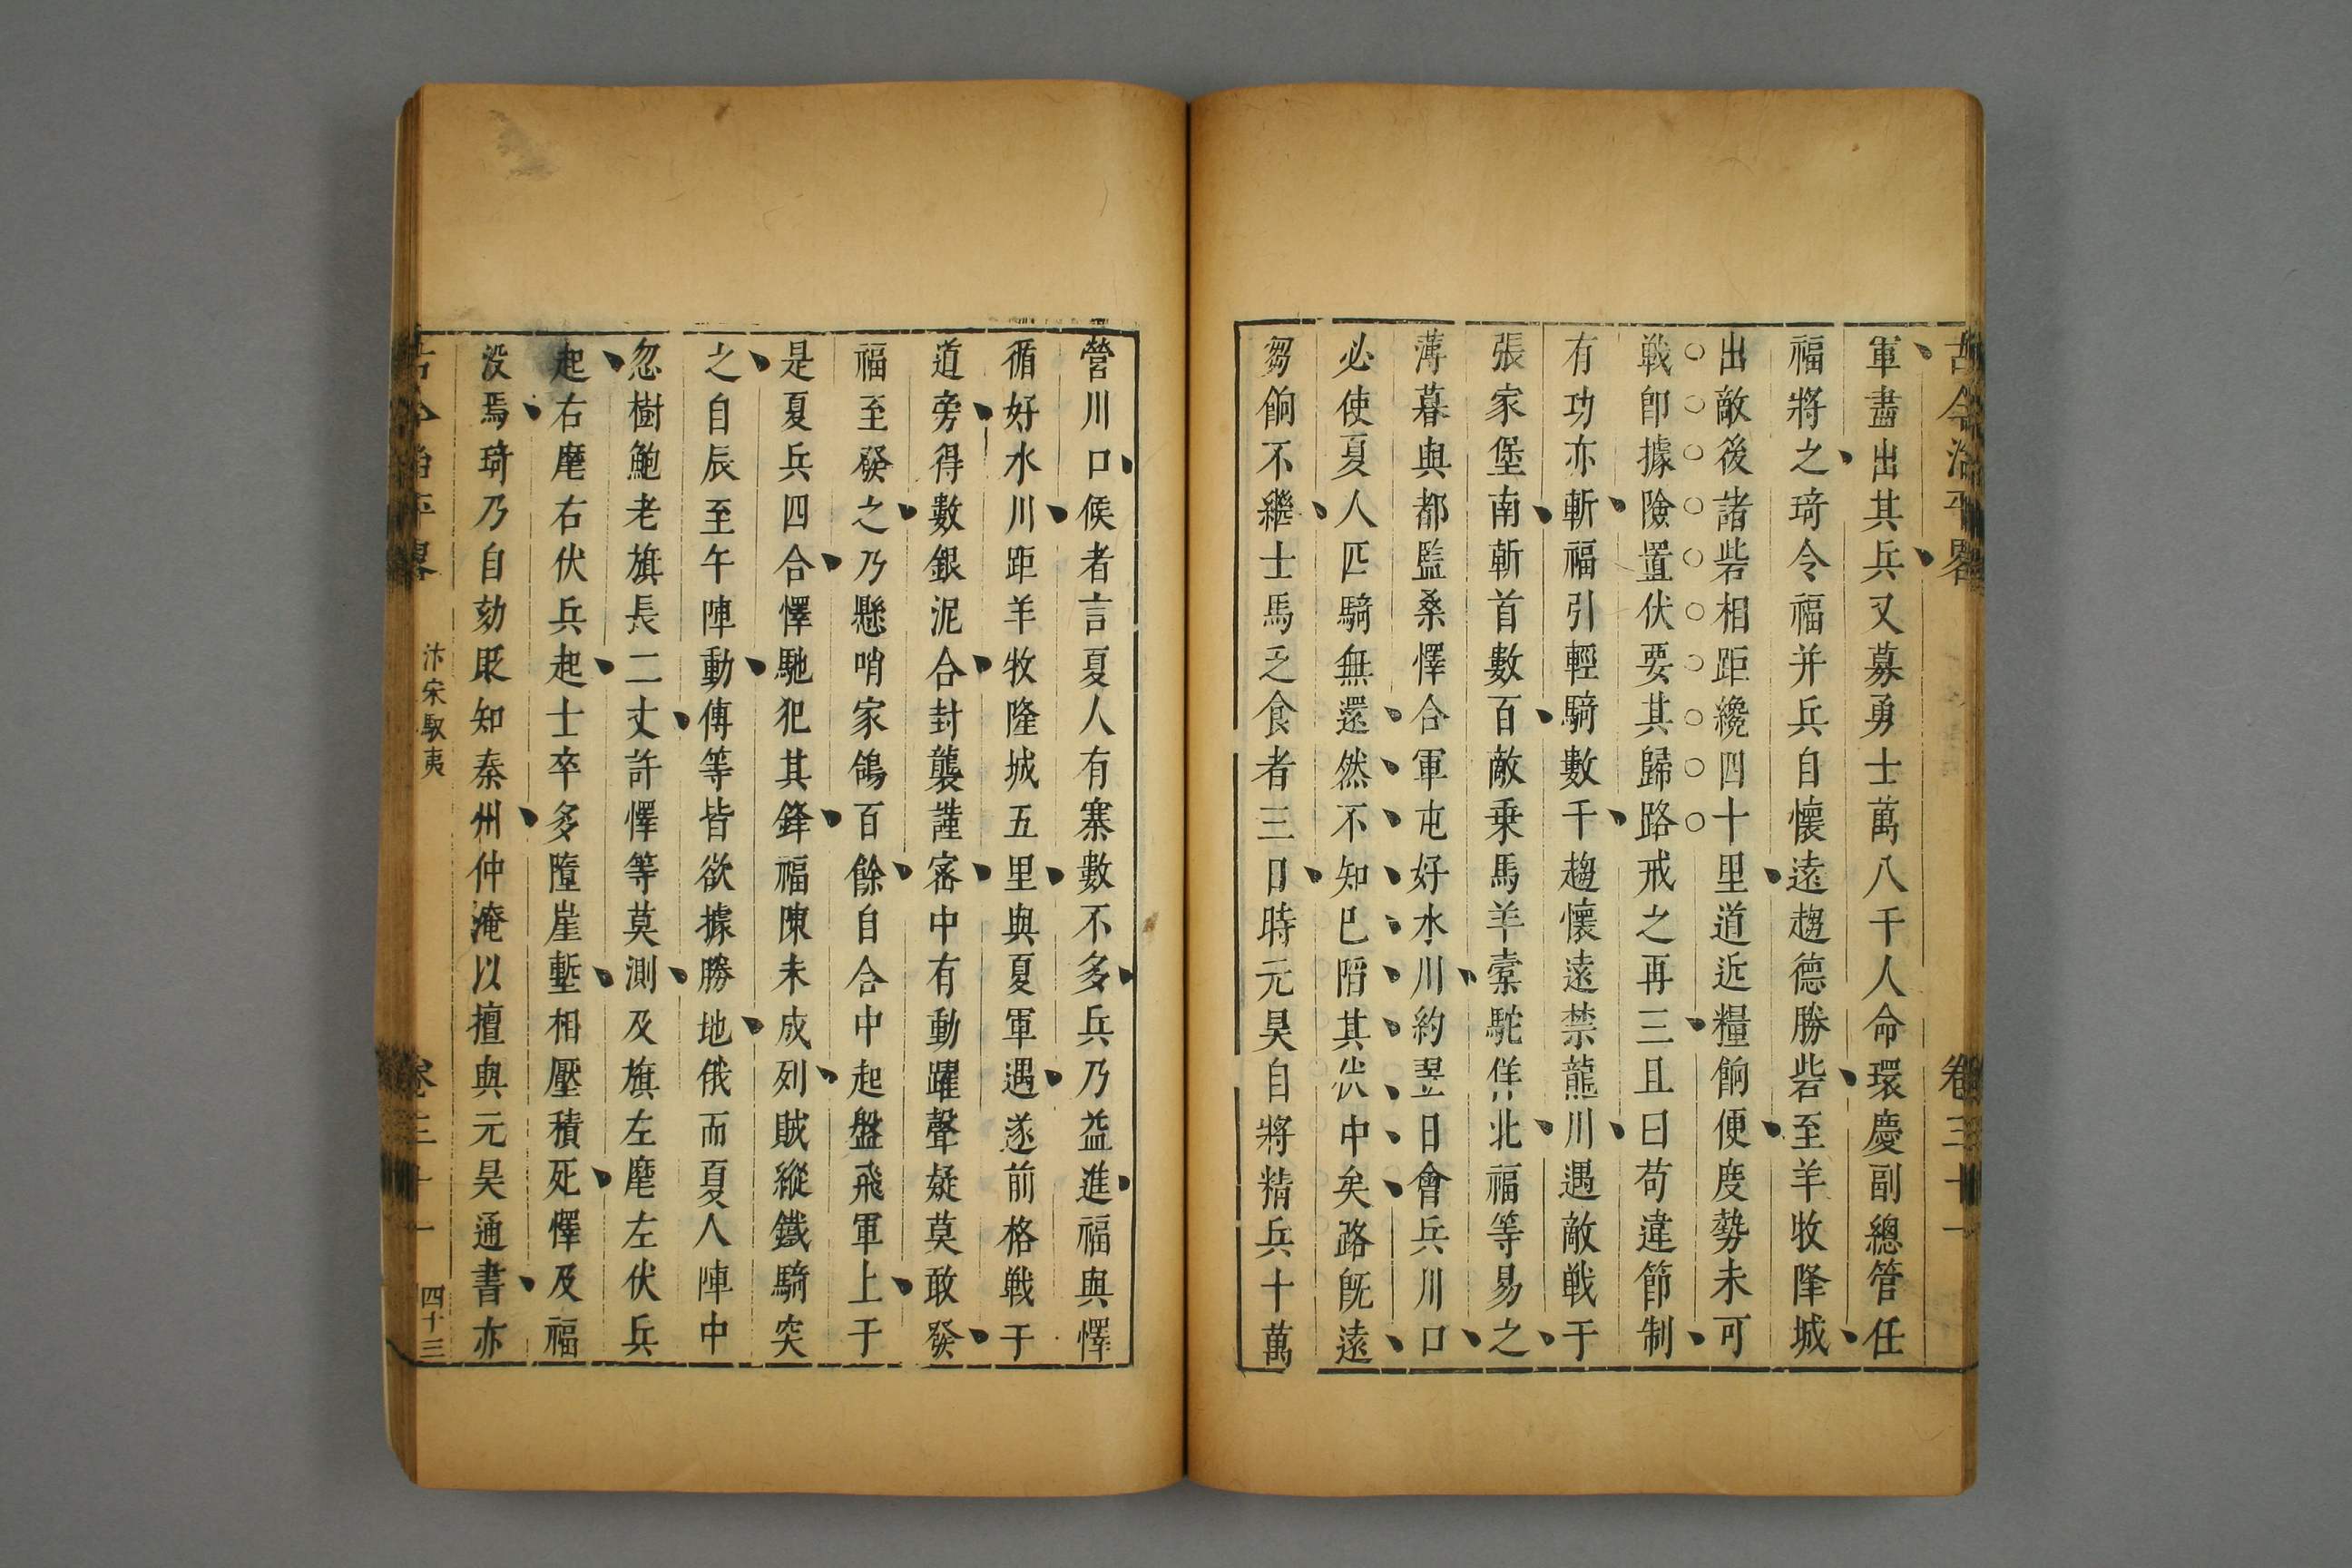 古今治平畧
卷三十一
軍盡出其兵又募勇士萬八千人命環慶副總管任
福將之琦令福并兵自懷遠趨德勝砦至羊牧隆城
出敵後諸砦相距纔四十里道近糧餉便度勢未可
戦卽據險置伏要其歸路戒之再三且曰苟違節制
有功亦斬福引輕騎數千趨懷遠禁龍川遇敵戦于
張家堡南斬首數百敵乗馬羊槖駝佯北福等易之
薄暮與都監桑懌合軍屯好水川約翌日會兵川口
必使夏人匹騎無還然不知已陷其伏中矣路旣遠
芻餉不繼士馬乏食者三日時元昊自將精兵十萬
營川口候者言夏人有寨數不多兵乃益進福與懌
循好水川距羊牧隆城五里與夏軍遇遂前格戦于
道旁得數銀泥合封襲謹密中有動躍聲疑莫敢發
福至發之乃懸哨家鴿百餘自合中起盤飛軍上于
是夏兵四合懌馳犯其鋒福陳未成列賊縱鐵騎突
之自辰至午陣動傅等皆欲據勝地俄而夏人陣中
忽樹鮑老旗長二丈許懌等莫測及旗左麾左伏兵
起右麾右伏兵起士卒多墮崖塹相壓積死懌及福
没焉琦乃自劾旣知秦州仲淹以擅與元昊通書亦
古今治平畧
汴宋馭夷
卷三十一
四十三